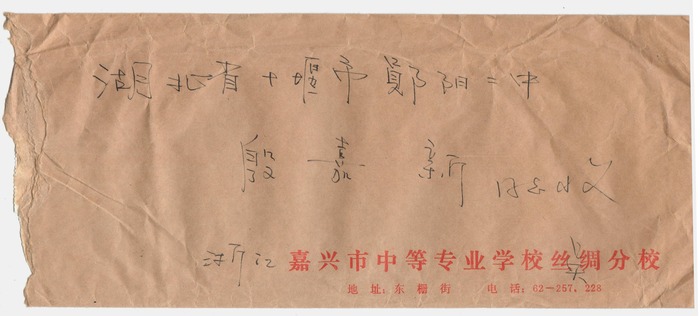 湖北省十堰市郧阳二中
殷嘉新 同志收
浙江 嘉兴市中等专业学校丝绸分校
地址:东栅街 电话:62-257,228